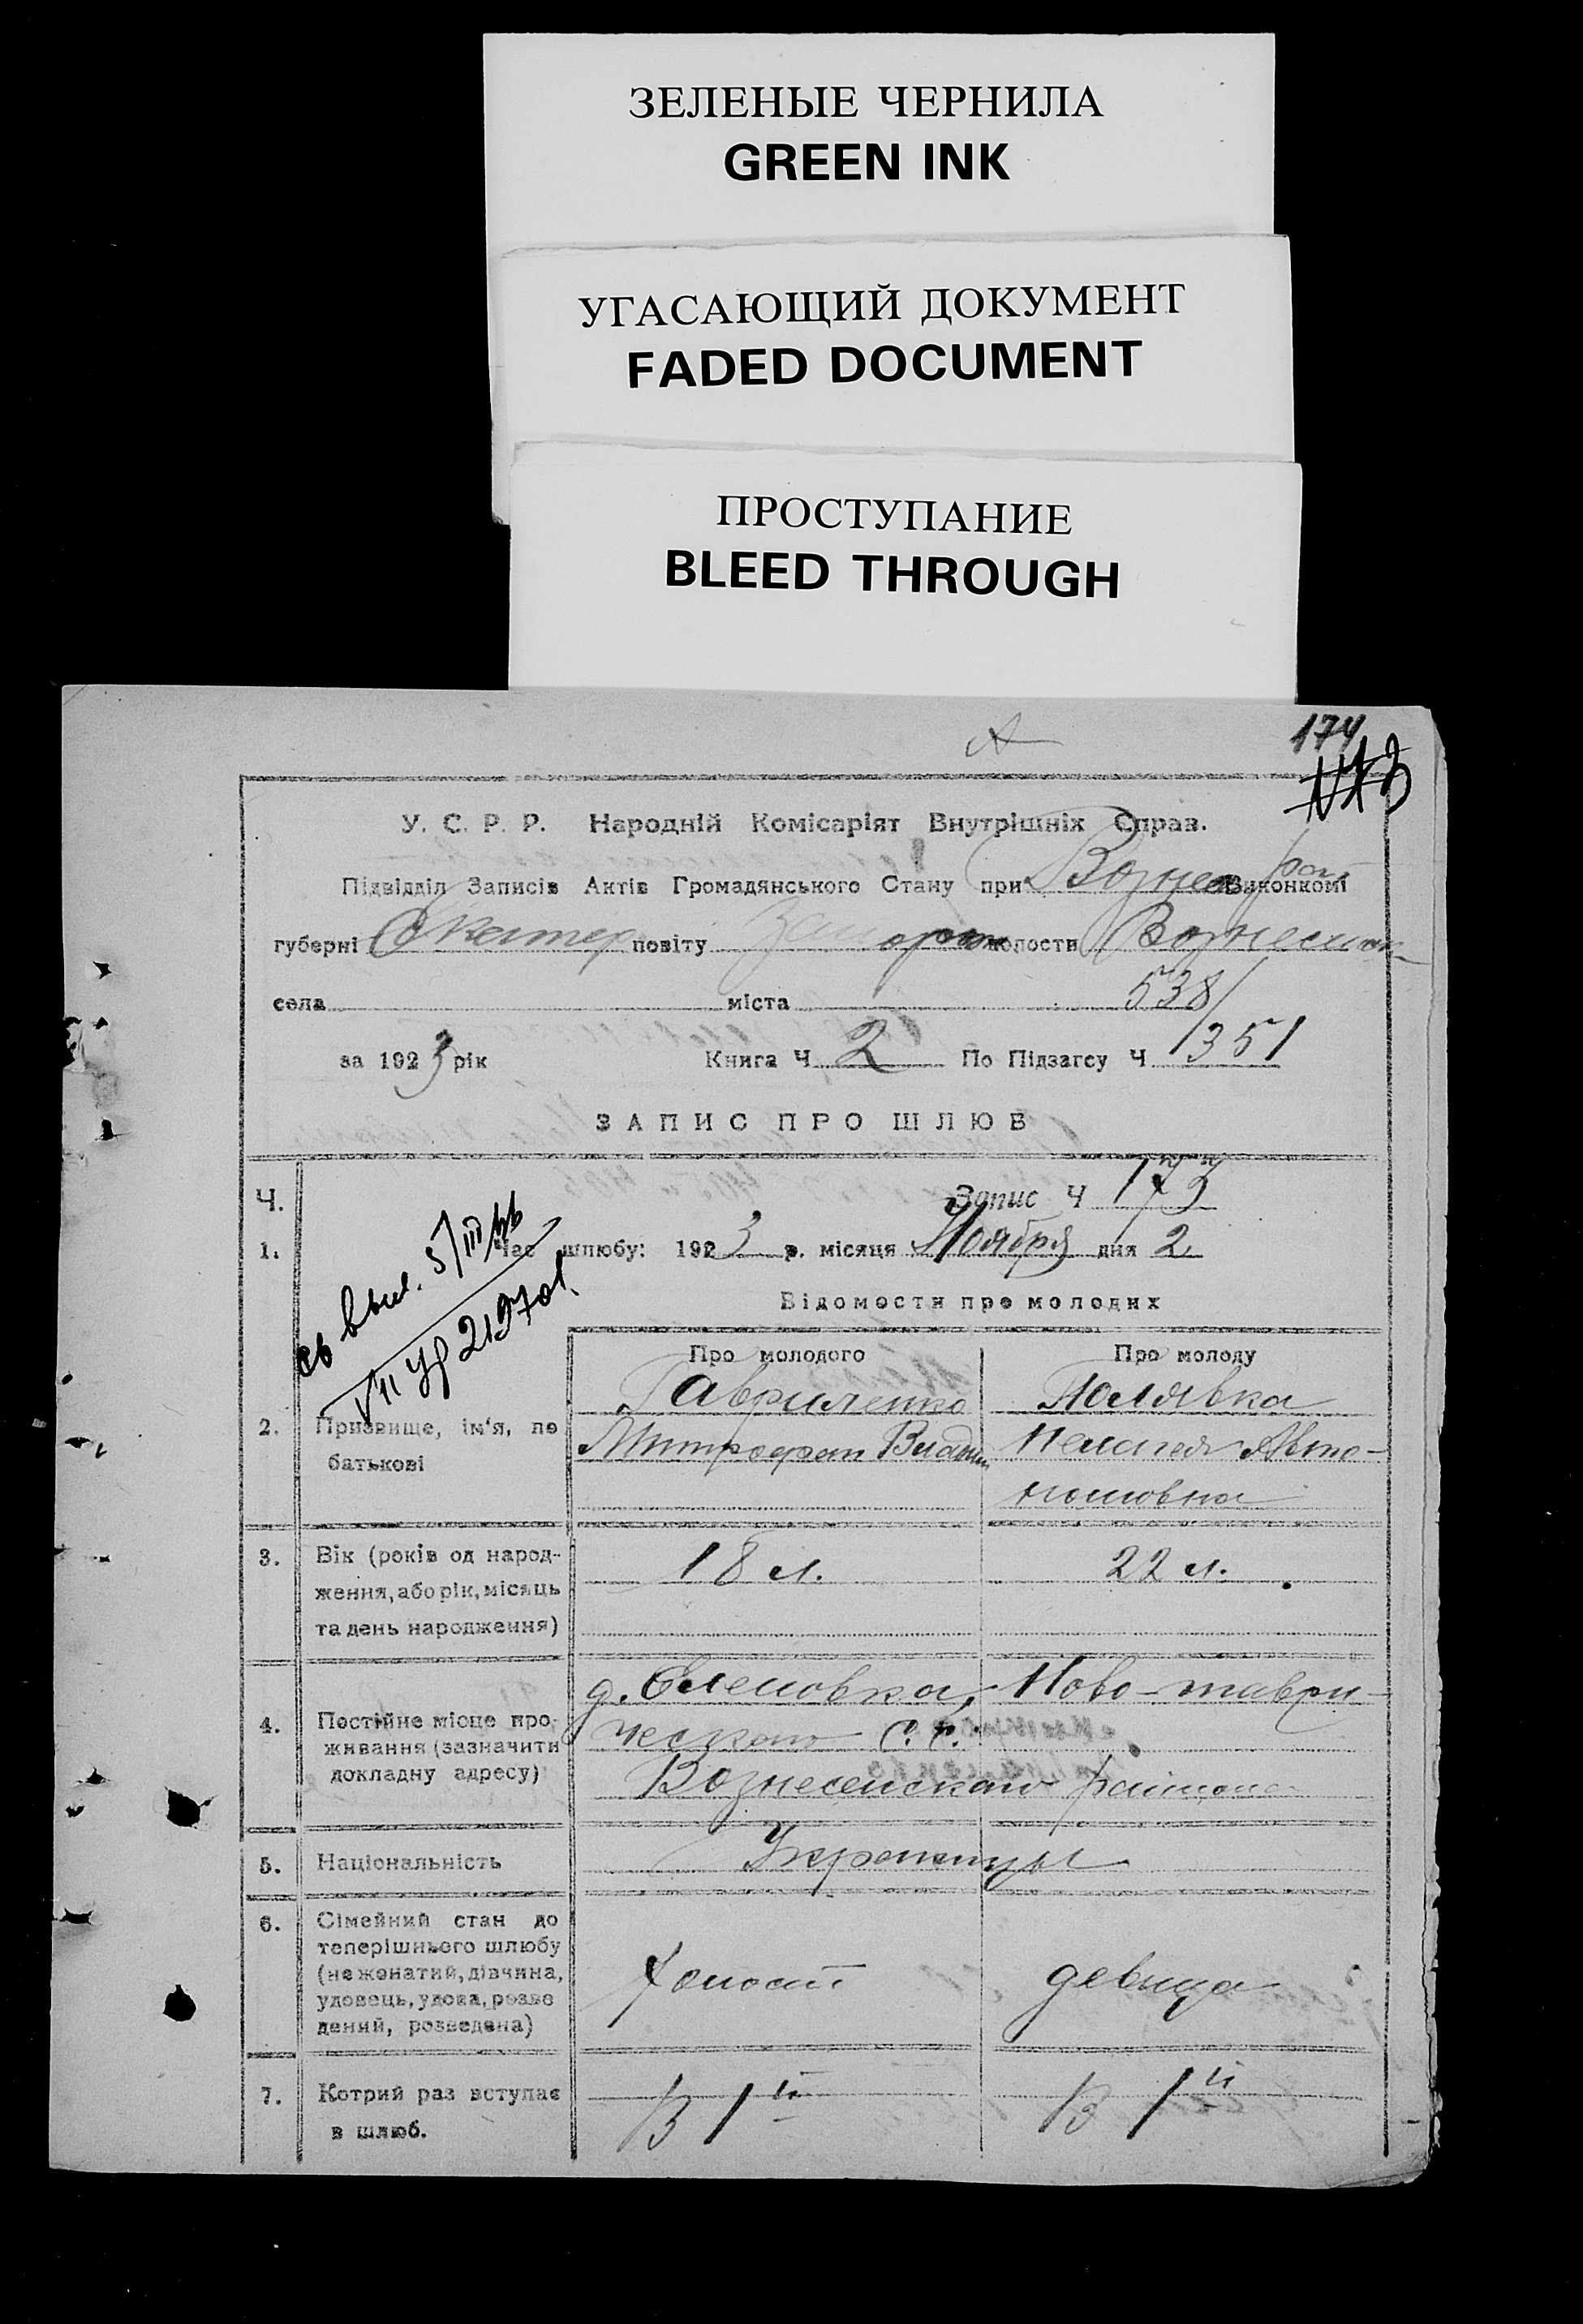 ЗЕЛЕНЫЕ ЧЕРНИЛА
GREEN INK
УГАСАЮЩИЙ ДОКУМЕНТ
FADED DOCUMENT
ПРОСТУПАНИЕ
BLEED THROUGH
174
У. С. Р. Р. Народній Комісаріят Внутрішніх Справ.
Підвідділ Записів Актів Громадянського Стану при Вознес рай Виконкомі
губерні Екатер повіту Запорож волости Вознесенск
села міста 538/
за 1923 рік Книга Ч 2 По Підзагсу Ч 1351
ЗАПИС ПРО ШЛЮБ
Ч. Запис Ч 173
1. Час шлюбу: 1923 р. місяця Ноября дня 2.
Відомости про молодих
Про молодого Про молоду
2. Призвище, ім'я, по батькові
Гавриленко
Митрофан Владим
Полявка
Пелагея Авто-
номовна
3. Вік (років од народ-
ження, або рік, місяць
та день народження)
18 л. 22 л.
4. Постійне місце про-
живання (зазначити
докладну адресу)
д. Еленовка, Ново-таври-
ческого С. С.
Вознесенскаго района
5. Національність Украинцы
6. Сімейний стан до
теперішнього шлюбу
(не жонатий, дівчина,
удовець, удова, розве
дений, розведена)
холост девица
7. Котрий раз вступає
в шлюб.
В 1й В 1й